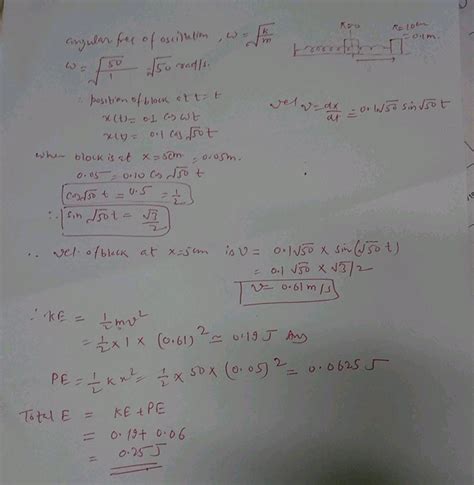 angular freq of oscillation, ω = √(k/m)
ω = √(50/1) = √50 rad/s.
x=0
x=10cm
= 0.1m.
∴ position of block at t=t
x(t) = 0.1 cos ωt
x(t) = 0.1 cos √50 t
vel v = dx/dt = 0.1√50 sin √50 t
when block is at x = 5cm = 0.05m.
0.05 = 0.10 cos √50 t
cos √50 t = 0.5 = 1/2
∴ sin √50 t = √3/2
∴ vel. of block at x=5cm is v = 0.1√50 × sin(√50 t)
= 0.1 √50 × √3/2
v = 0.61 m/s
∴ KE = 1/2 mv²
= 1/2 × 1 × (0.61)² ≃ 0.19 J Ans
PE = 1/2 kx² = 1/2 × 50 × (0.05)² = 0.0625 J
Total E = KE + PE
= 0.19 + 0.06
= 0.25 J